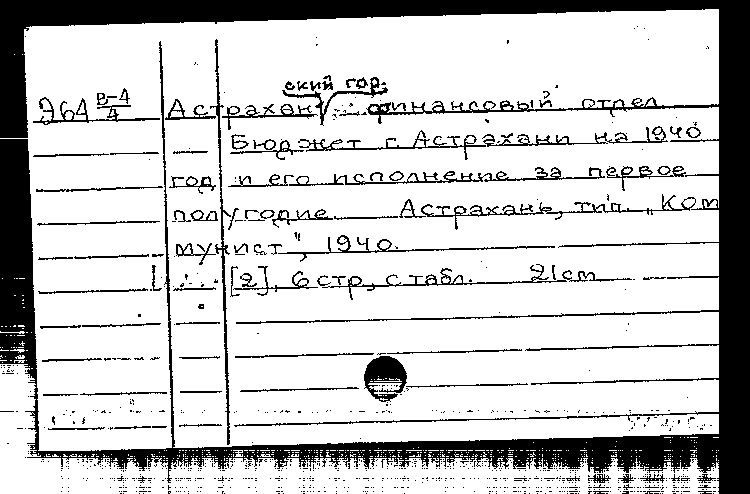 ский гор.
Э64 В-4/4 Астрахан финансовый отдел
Бюджет г. Астрахани на 1940
год и его исполнение за первое
полугодие. Астрахань, тип. „Ком
мунист", 1940.
[2], 6 стр, с табл. 21 cm